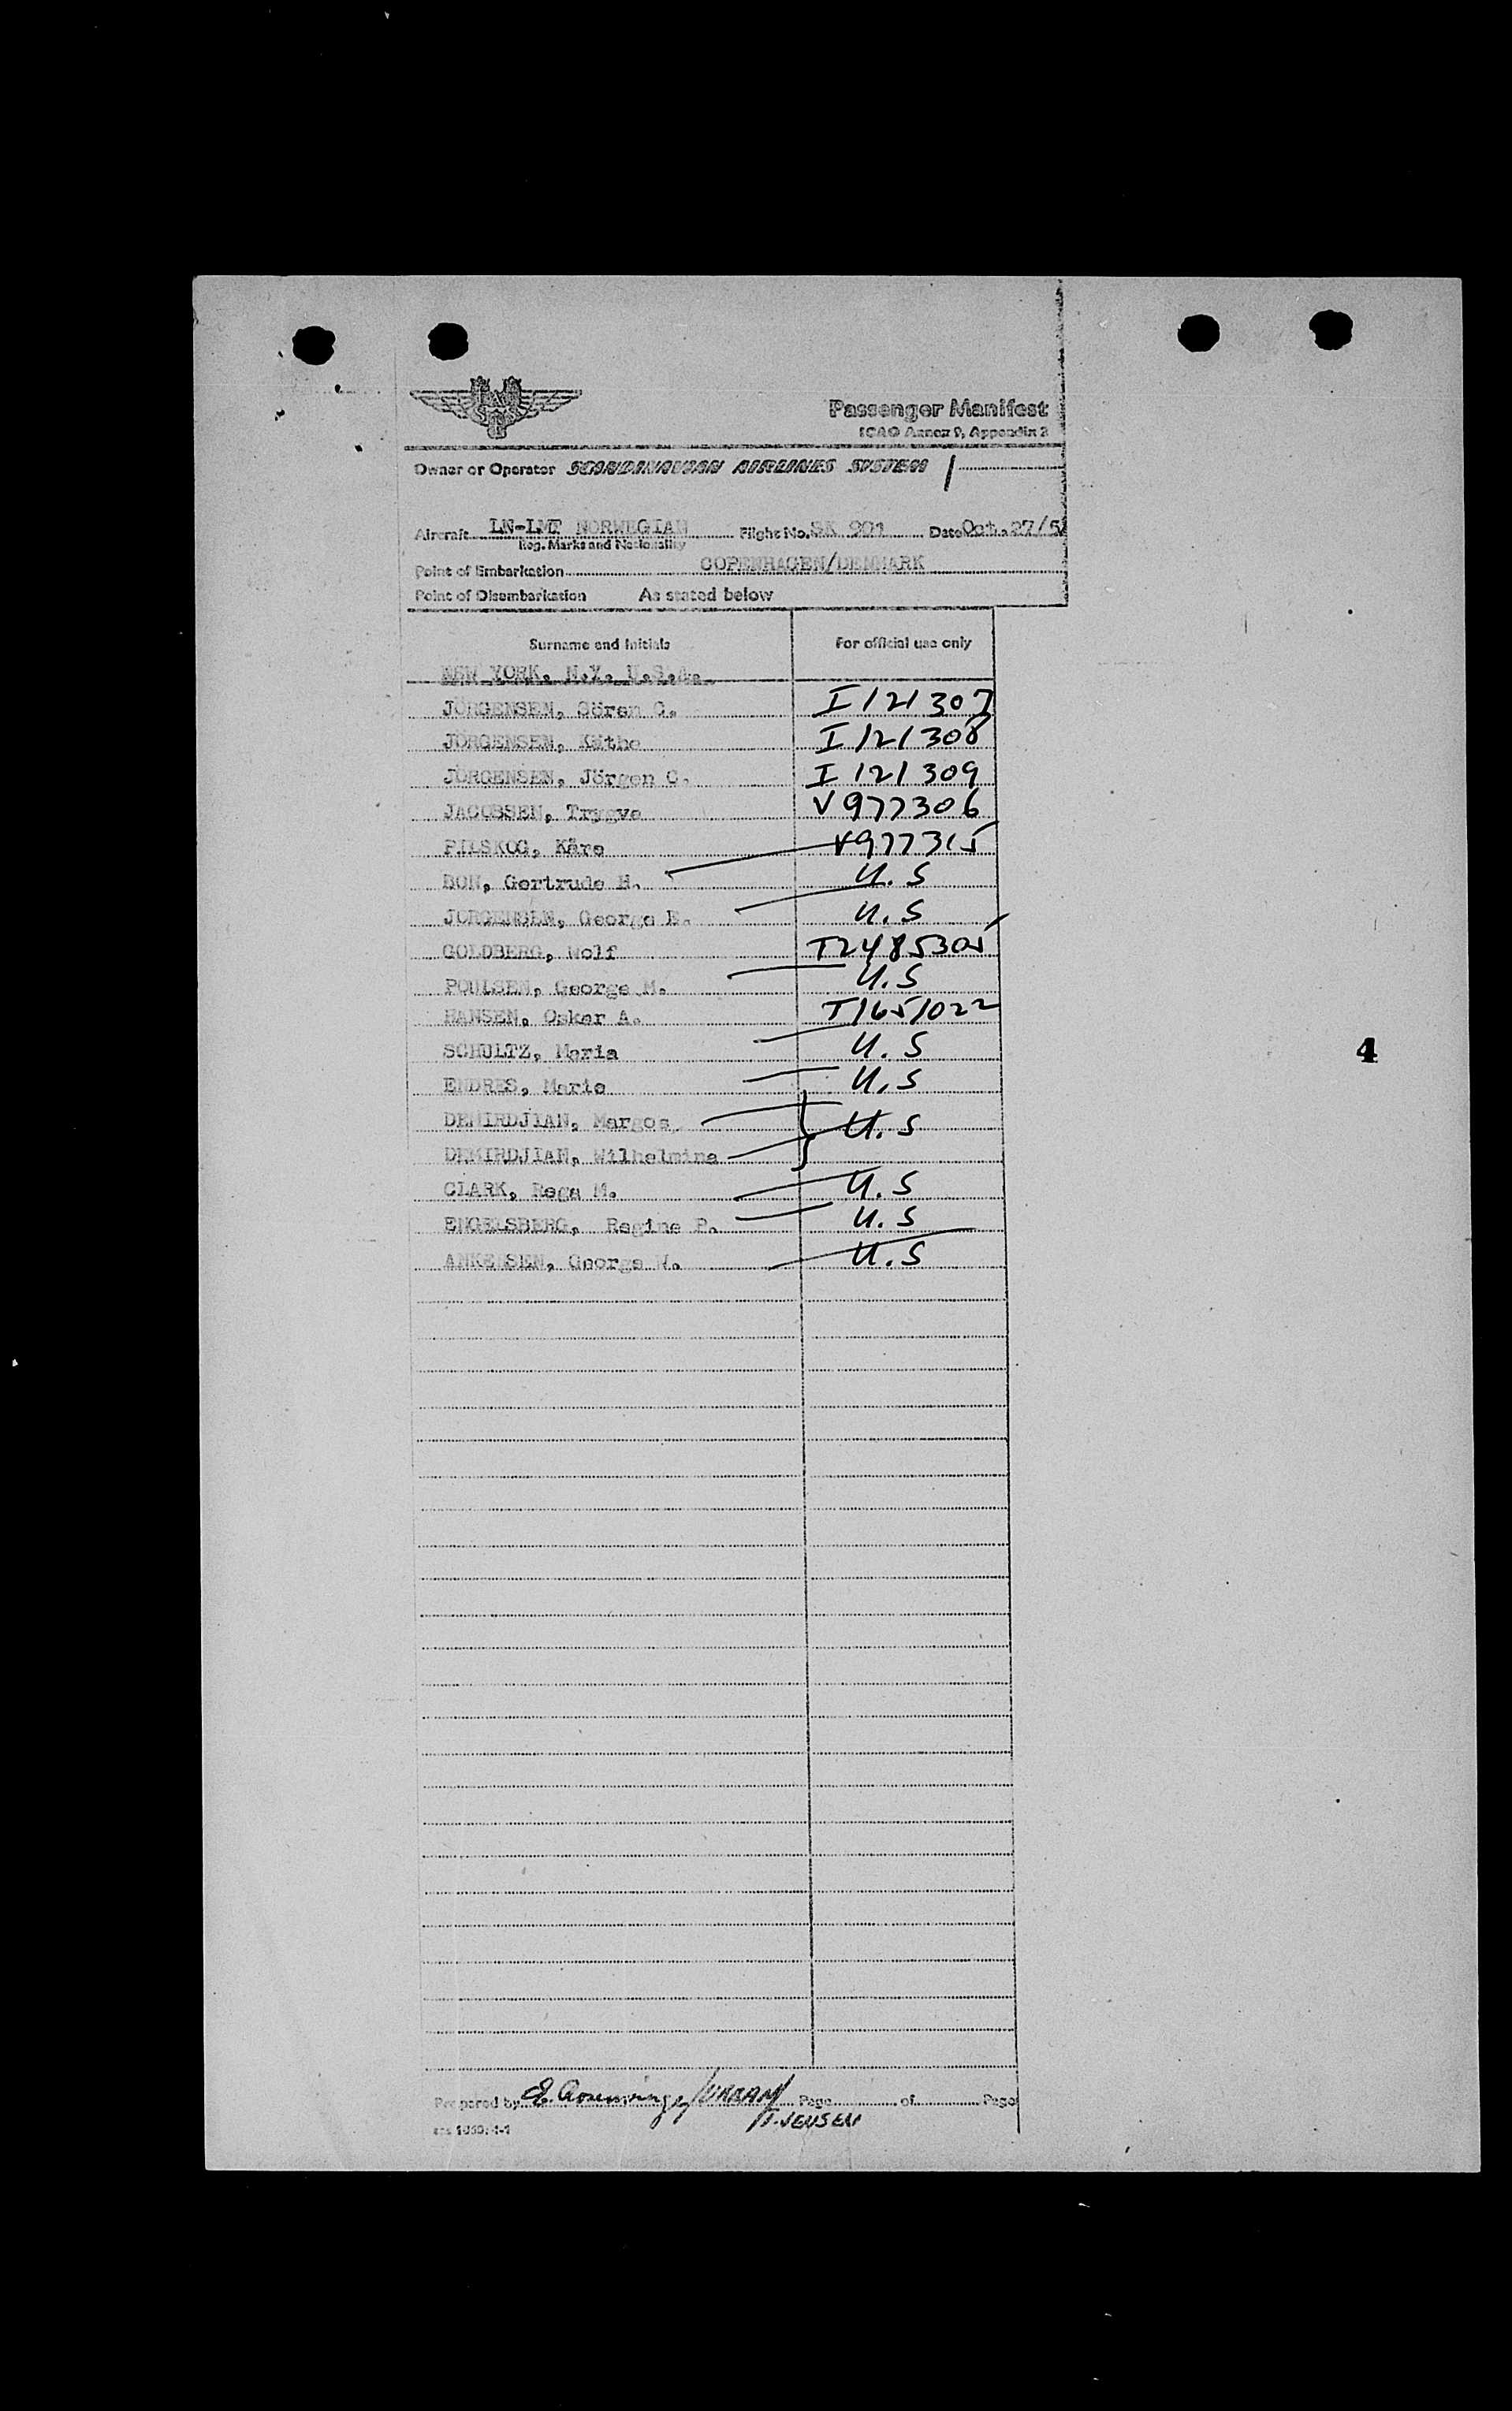 Passenger Manifest
ICAO Annex 9, Appendix 3
Owner or Operator SCANDINAVIAN AIRLINES SYSTEM /
Aircraft LN-LMT NORWEGIAN Flight No. SK 901 Date Oct. 27/5
Reg. Marks and Nationality
Point of Embarkation COPENHAGEN/DENMARK
Point of Disembarkation As stated below
Surname and Initials For official use only
NEW YORK, N.Y. U.S.A.
JÖRGENSEN, Sören C. I 121 307
JÖRGENSEN, Käthe I 121 308
JÖRGENSEN, Jörgen C. I 121 309
JACOBSEN, Trygve V 977306
PILSKOG, Kåre V977315
BON, Gertrude H. U.S
JORGENSEN, George E. U.S
GOLDBERG, Wolf T2485305
POULSEN, George M. U.S
HANSEN, Oskar A. T1651022
4
SCHULTZ, Maria U.S
ENDRES, Marie U.S
DEMIRDJIAN, Margos U.S
DEMIRDJIAN, Wilhelmina
CLARK, Rega M. U.S
ENGELSBERG, Regine P. U.S
ANKERSEN, George W. U.S
Prepared by E. Page of Page
T. JENSEN